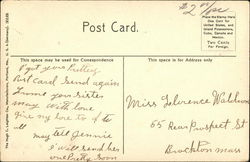 $2 00/pc
Post Card.
Place the Stamp Here
One Cent for
United States,
and Island
Possessions,
Cuba, Canada and
Mexico.
Two Cents
For Foreign.
This space may be used for Correspondence
This space is for Address only
I got yours Pretty
Post Card Send again
From your sister
May With love
give my love to
all
may tell Jennie
I will send her
one Pretty Soon
Miss Florence
65 Rear Prospect St
Brockton Mass